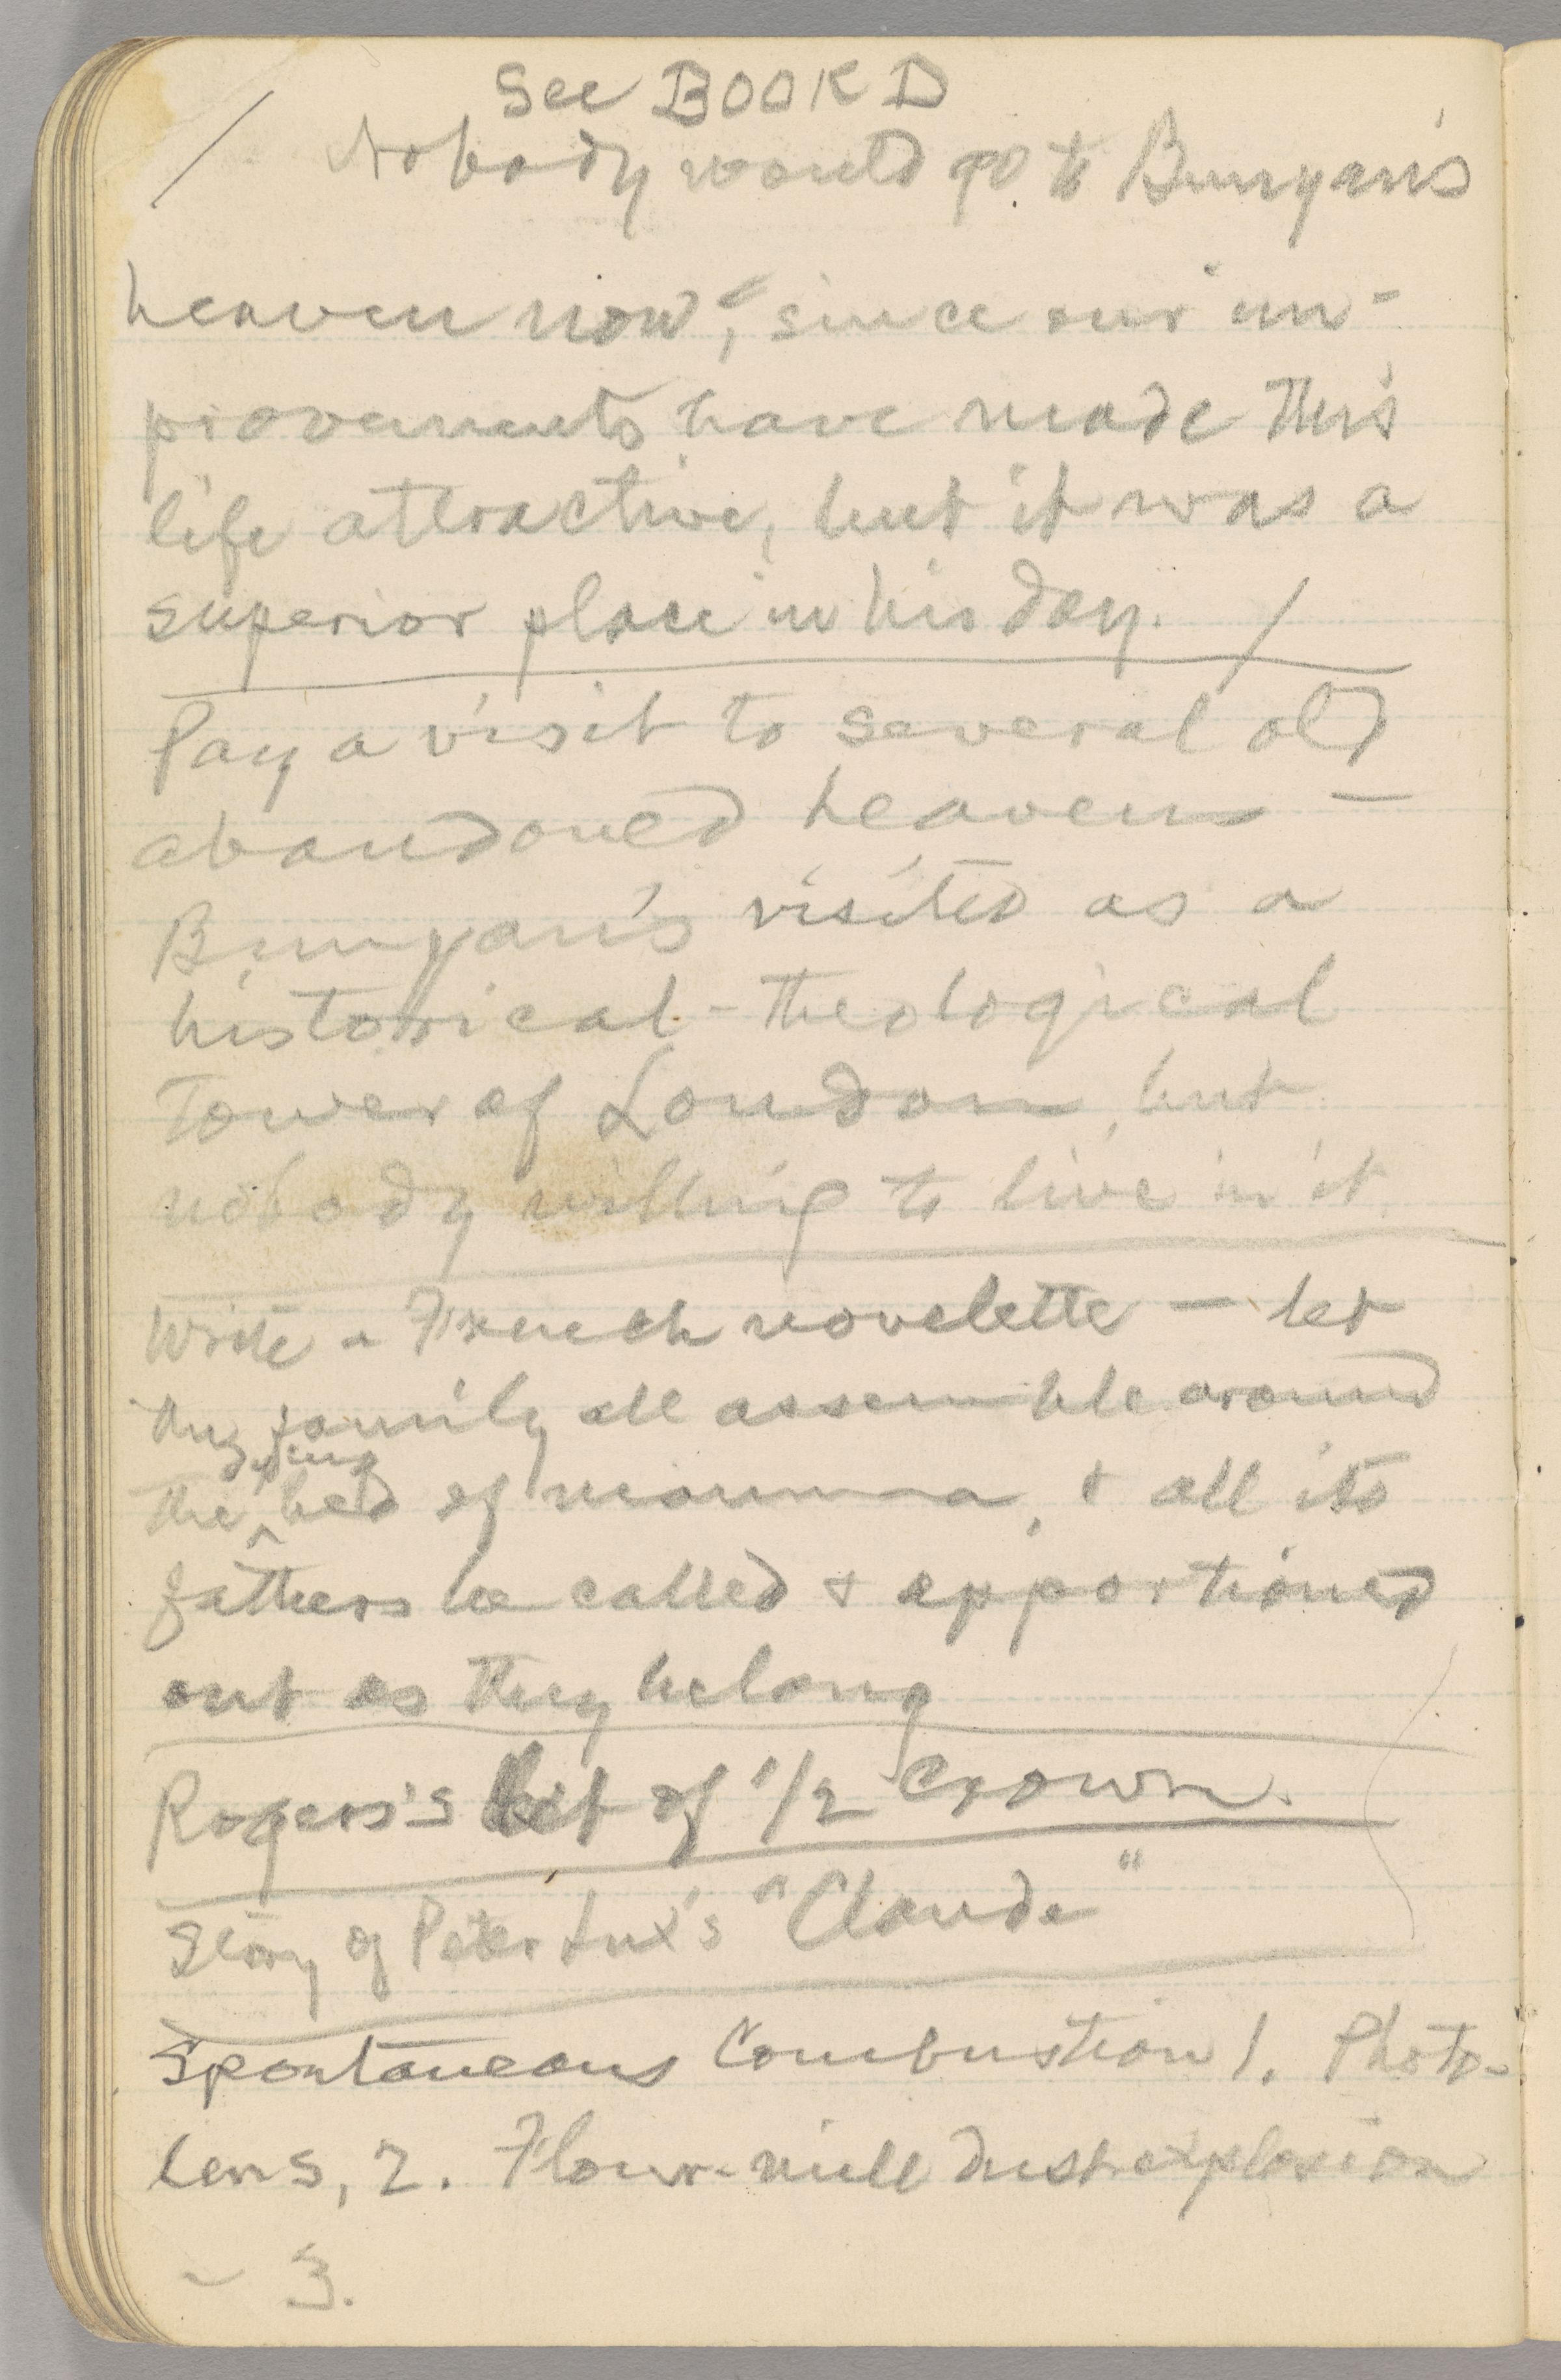 See BOOK D
/ Nobody would go to Bunyan's
heaven now, since our im-
provements have made this
life attractive, but it was a
superior place in his day. /
Pay a visit to several old
abandoned heavens —
Bunyan's visited as a
historical-theological
Tower of London, but
nobody willing to live in it.
Write a French novelette — let
the family all assemble around
dying
the ^ bed of mamma, & all its
fathers be called & apportioned
out as they belong
Rogers's bit of 1/2 crown.
Story of Peter Lux's "Claude"
Spontaneous Combustion 1. Photo-
lens, 2. Flour-mill dust explosion
~ 3.